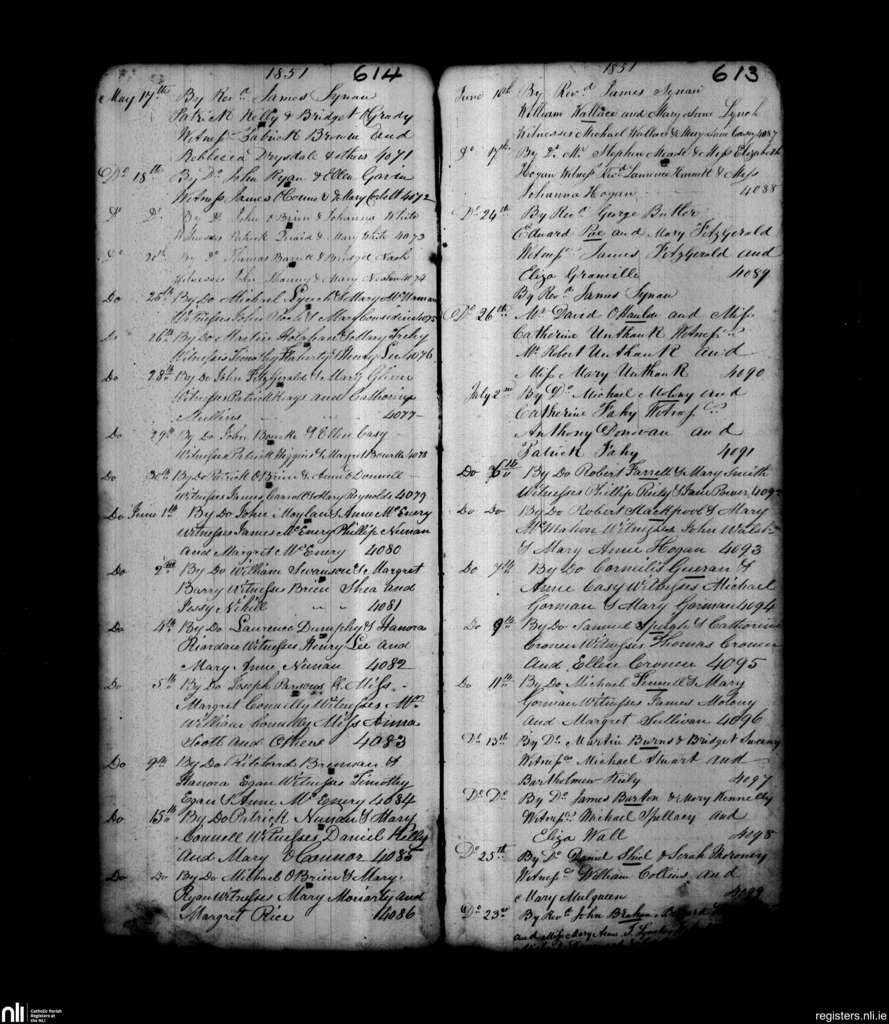 1851 614
May 17th By Revd. James Synan
Patrick Kelly & Bridget O'Grady
Witness Patrick Brown and
Rebbecca Drysdale & others 4071
Do. 18th By Do. John Ryan & Ellen
Witness James O'Connor & Mary Corbett 4072
Do. Do. By Do. John O'Brien & Johanna White
Witnesses Patrick Quaid & Mary White 4073
Do By Do Thomas & Bridget Nash
Witnesses John & Mary 4074
Do 25th By Do Michael Lynch & Mary McNamara
Witnesses John & Mary Considine 4075
Do 26th By Do Martin Holahan & Mary
Witnesses Timothy Flaherty & Henry Lee 4076
Do 28th By Do John FitzGerald & Mary Glinn
Witnesses Patrick Hays and Catherine
Mullins 4077
Do 29th By Do John Bourke & Ellen Casy
Witnesses Patrick Higgins & Margret Bourke 4078
Do 30th By Do Patrick O'Brien & Anne O'Donnell
Witnesses James Carroll & Mary Reynolds 4079
Do June 1st By Do John Moylan & Anne McEnery
Witnesses James McEnery Phillip Nunan
and Margret McEnery 4080
Do 2nd By Do William Swanson & Margret
Barry Witnesses Brien Shea and
Jessy Nihill 4081
Do 4th By Do Laurence Dumphy & Hanora
Riordan Witnesses Henry Lee and
Mary Anne Nunan 4082
Do 5th By Do Joseph Parsons & Miss
Margret Connelly Witnesses Mr.
William Connelly Miss Anna
Scott and Others 4083
Do 9th By Do Richard Brennan &
Hanora Egan Witnesses Timothy
Egan & Anne McEnery 4084
Do 15th By Do Patrick Nunan & Mary
Connell Witnesses Daniel Kelly
and Mary O'Connor 4085
Do Do By Do Michael O'Brien & Mary
Ryan Witnesses Mary Moriarty and
Margret Rice 4086
1851 613
June 16th By Revd. James Synan
William Wallace and Mary Anne Lynch
Witnesses Michael Wallace & Mary Anne Casey 4087
Do 17th By Do. Mr. Stephen Meade & Miss Elizabeth
Hogan Witness Revd. Laurence & Miss
Johanna Hogan 4088
Do. 24th By Revd. George Butler
Edward Roe and Mary FitzGerald
Witness James FitzGerald and
Eliza Granville 4089
By Revd. James Synan
Do. 26th Mr. David and Miss
Catherine Unthank Witness
Mr. Robert Unthank and
Miss Mary Unthank 4090
July 2nd By Do. Michael Molony and
Catherine Fahy Witness
Anthony Donovan and
Patrick Fahy 4091
Do 6th By Do Robert Farrell & Mary Smith
Witnesses Phillip Ruby & Jane Power 4092
Do Do By Do Robert Stackpool & Mary
McMahon Witnesses John Walsh
& Mary Anne Hogan 4093
Do 7th By Do Cornelis Gueran &
Anne Casy Witnesses Michael
Gorman & Mary Gorman 4094
Do 9th By Do Samuel Speight & Catherine
Cronen Witnesses Thomas Cronen
and Ellen Cronen 4095
Do 11th By Do Michael & Mary
Gorman Witnesses James Molony
and Margret Sullivan 4096
Do. 13th By Do. Martin Burns & Bridget Sweeny
Witness Michael Stuart and
Bartholomew Ruby 4097
Do. Do. By Do. James Barton & Mary Kennelly
Witness Michael Spellacy and
Eliza Wall 4098
Do. 25th By Do. Daniel Shiel & Sarah Moroney
Witness William Collins and
Mary Mulqueen 4099
Do. 23rd By Revd. John
and Miss Mary Anne
nli
Catholic Parish
Registers at
the NLI
registers.nli.ie